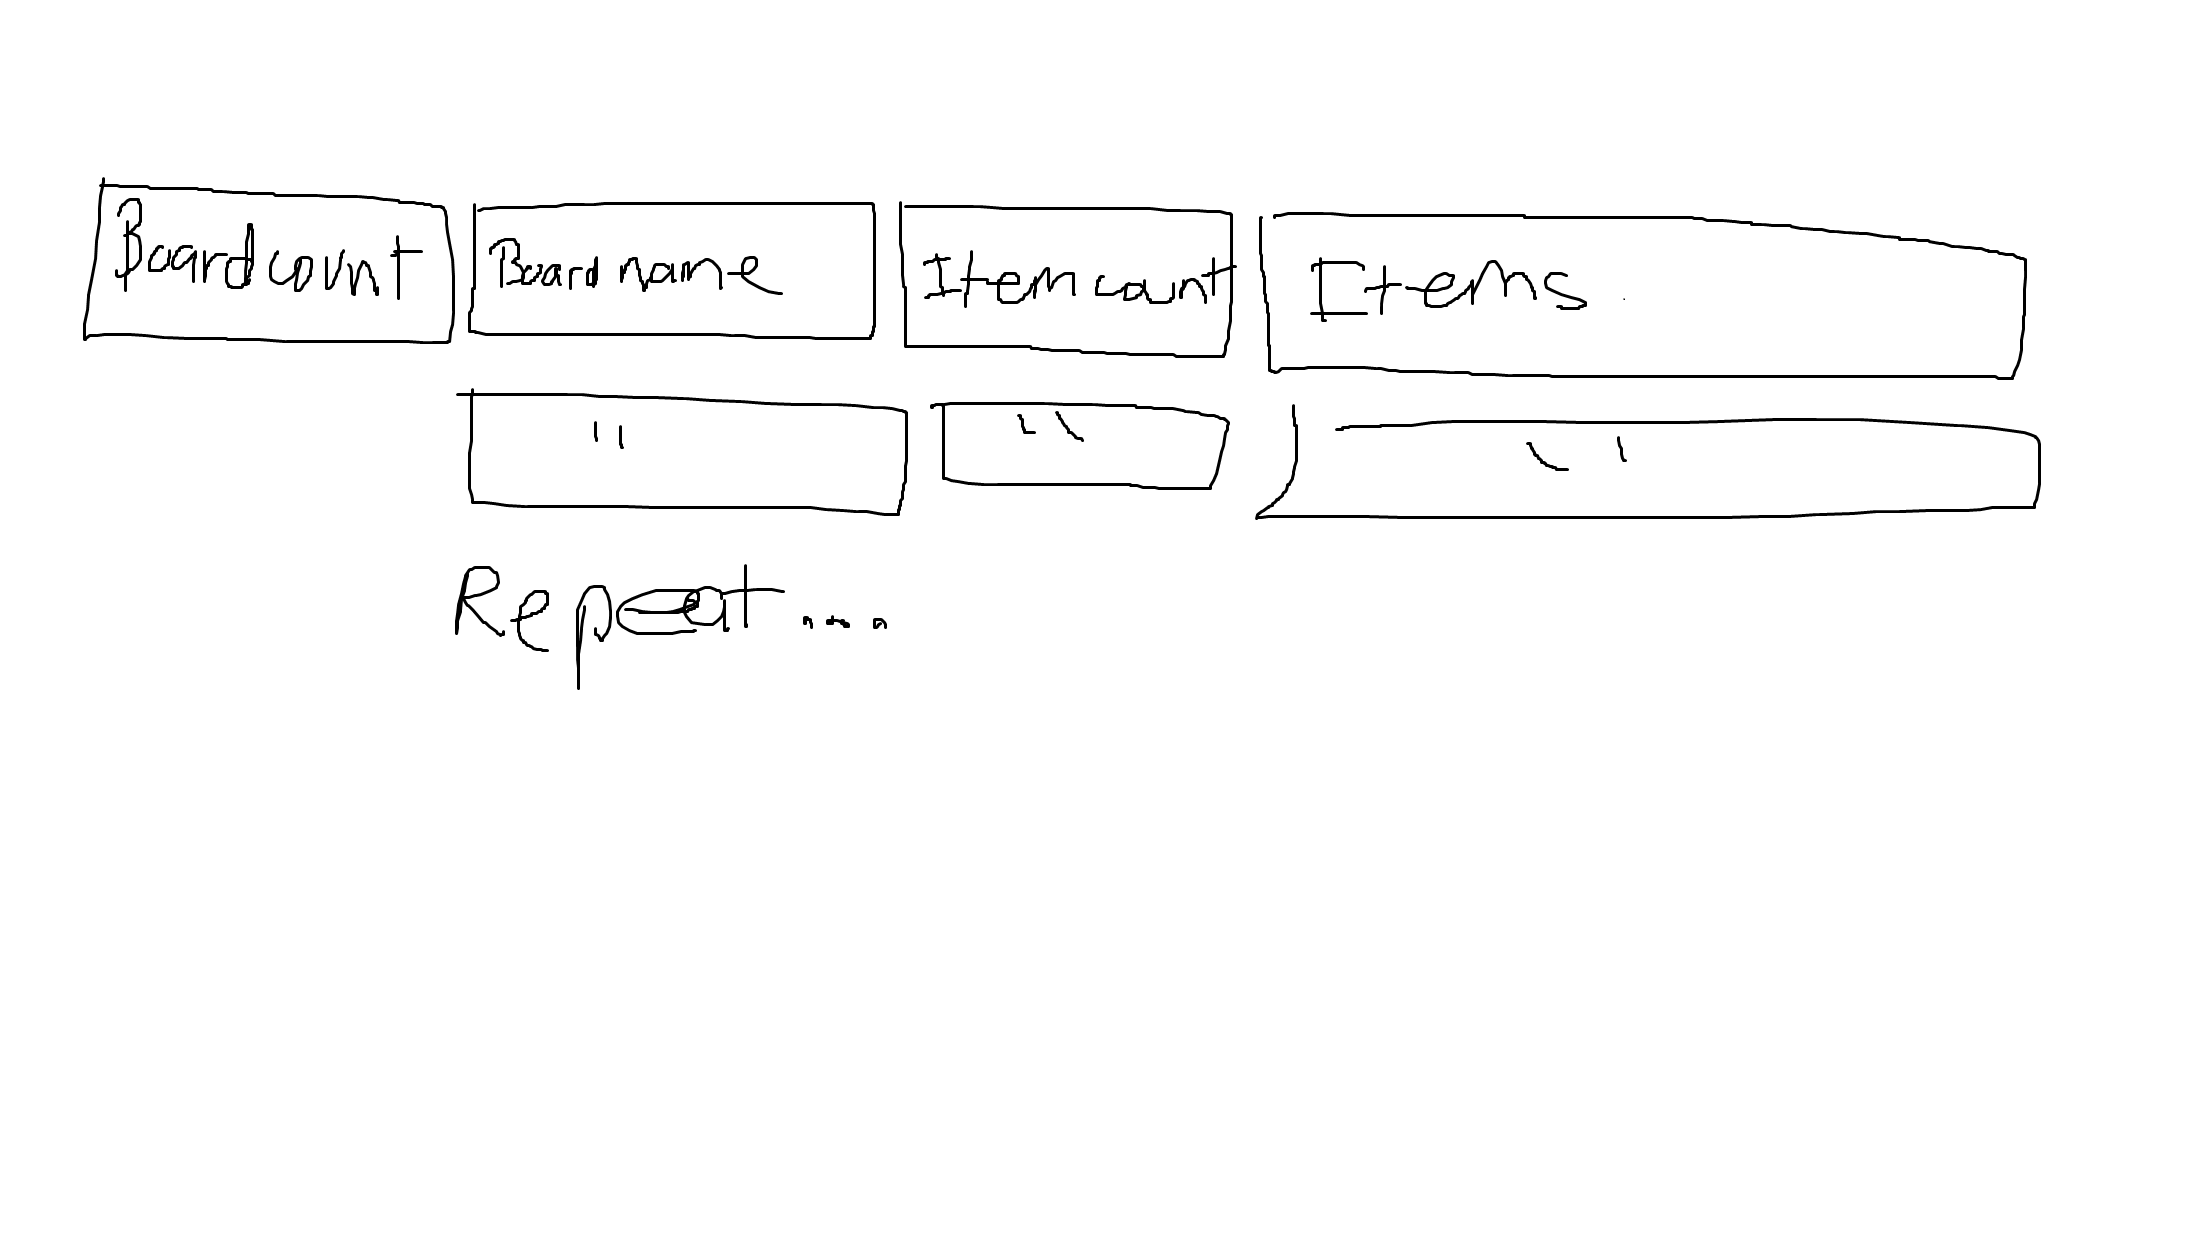 Board count Board name Item count Items
" " "
Repeat....